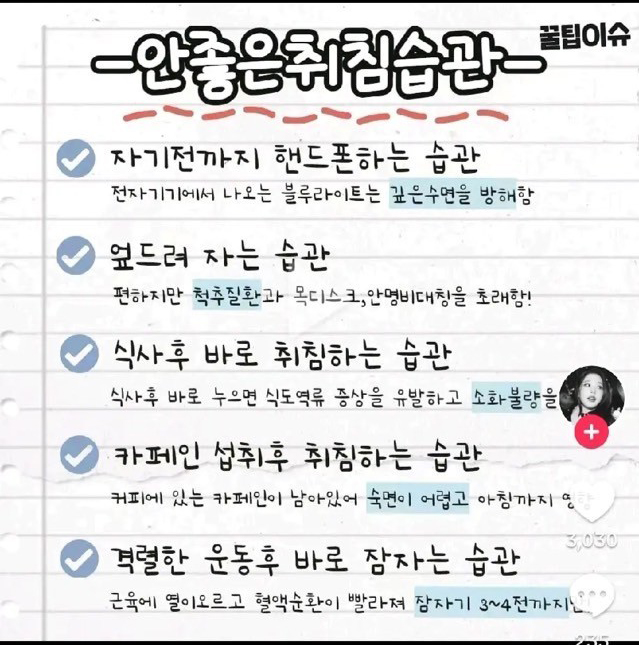 꿀팁이슈
안좋은취침습관
자기전까지 핸드폰하는 습관
전자기기에서 나오는 블루라이트는 깊은수면을 방해함
엎드려 자는 습관
편하지만 척추질환과 목디스크,안명비대칭을 초래함!
식사후 바로 취침하는 습관
식사후 바로 누으면 식도역류 증상을 유발하고 소화불량을
카페인 섭취후 취침하는 습관
커피에 있는 카페인이 남아있어 숙면이 어렵고 아침까지
3,030
격렬한 운동후 바로 잠자는 습관
근육에 열이오르고 혈액순환이 빨라져 잠자기 3~4전까지